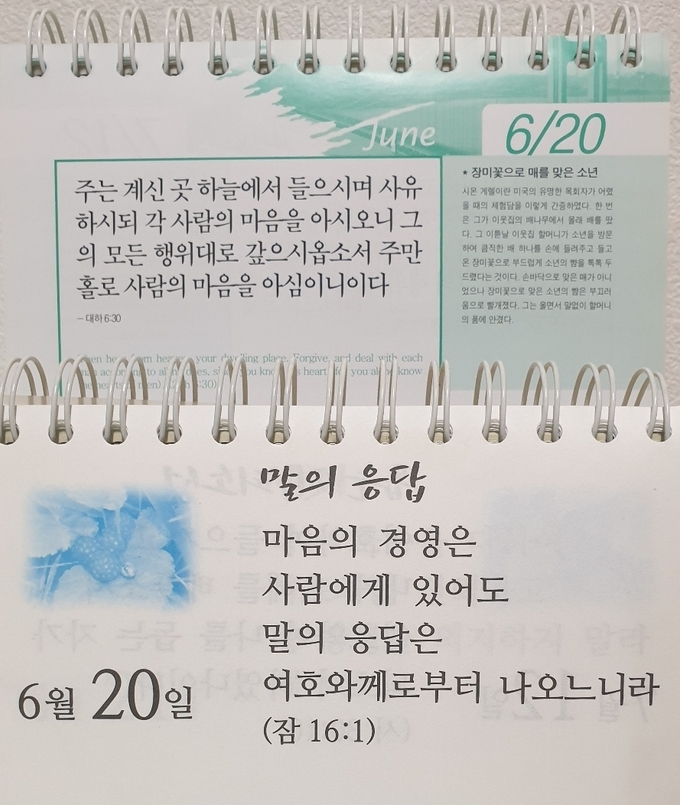 June
6/20
주는 계신 곳 하늘에서 들으시며 사유
하시되 각 사람의 마음을 아시오니 그
의 모든 행위대로 갚으시옵소서 주만
홀로 사람의 마음을 아심이니이다
– 대하 6:30
* 장미꽃으로 매를 맞은 소년
시몬 게렐이란 미국의 유명한 목회자가 어렸
을 때의 체험담을 이렇게 간증하였다. 한 번
은 그가 이웃집의 배나무에서 몰래 배를 땄
다. 그 이튿날 이웃집 할머니가 소년을 방문
하여 큼직한 배 하나를 손에 들려주고 들고
온 장미꽃으로 부드럽게 소년의 뺨을 톡톡 두
드렸다는 것이다. 손바닥으로 맞은 매가 아니
었으나 장미꽃으로 맞은 소년의 뺨은 부끄러
움으로 빨개졌다. 그는 울면서 말없이 할머니
의 품에 안겼다.
your dwelling place. Forgive, and deal with each
know
말의 응답
마음의 경영은
사람에게 있어도
말의 응답은
여호와께로부터 나오느니라
(잠 16:1)
6월 20일